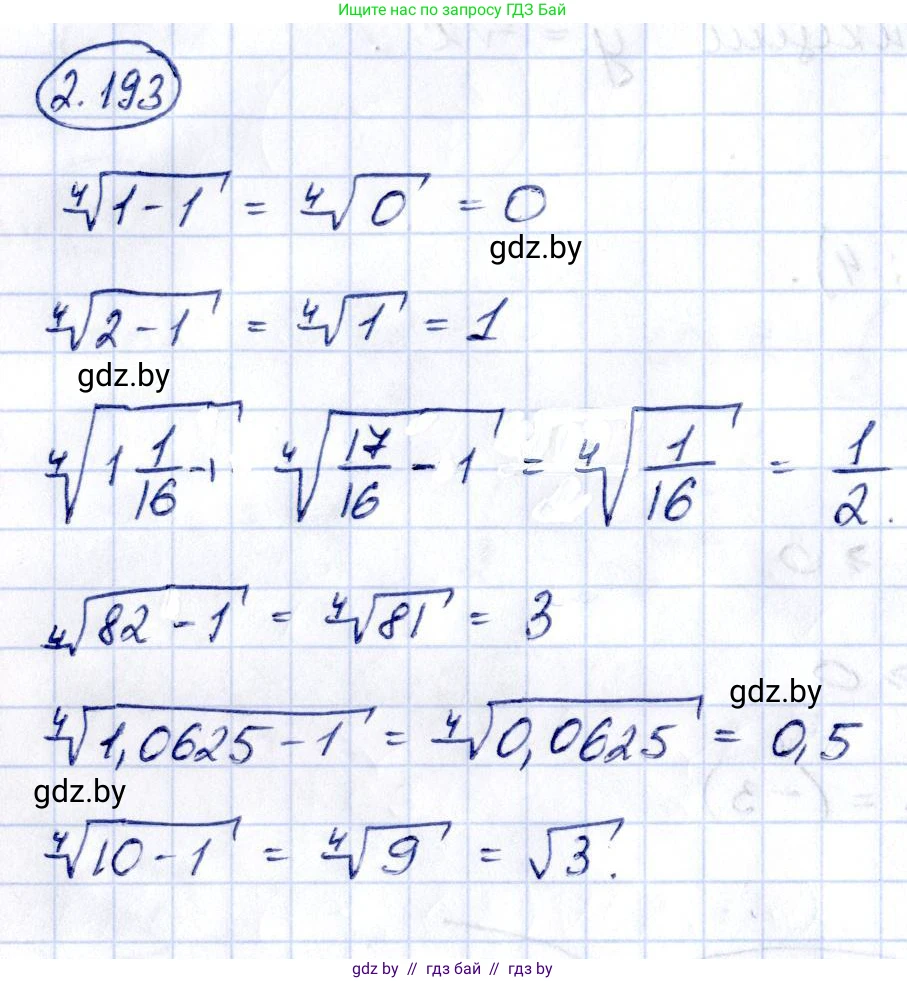 Ищите нас по запросу ГДЗ Бай
2.193
∜(1-1) = ∜0 = 0
gdz.by
∜(2-1) = ∜1 = 1
gdz.by
∜(1 1/16 - 1) ∜(17/16 - 1) = ∜(1/16) = 1/2.
∜(82-1) = ∜81 = 3
gdz.by
∜(1,0625-1) = ∜0,0625 = 0,5
gdz.by
∜(10-1) = ∜9 = √3.
gdz.by // гдз бай // gdz.by